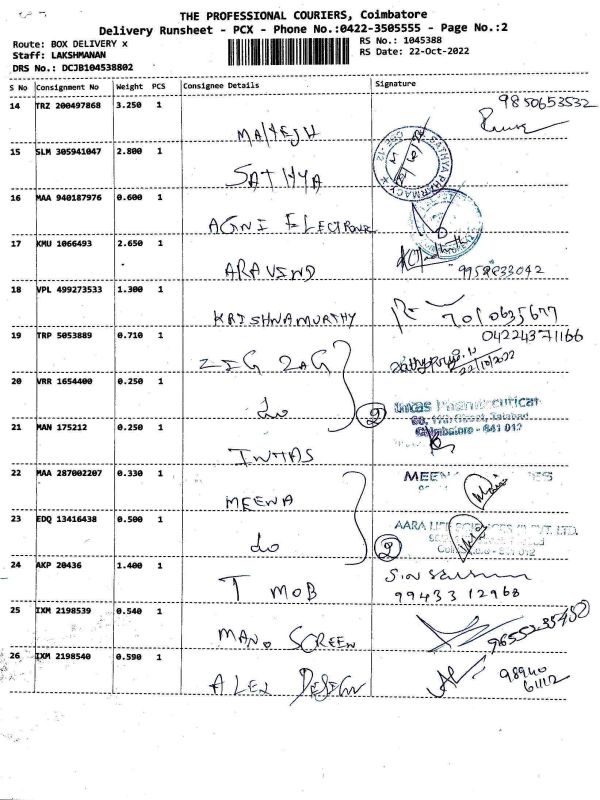 THE PROFESSIONAL COURIERS, Coimbatore
Delivery Runsheet - PCX - Phone No.:0422-3505555 - Page No.:2
Route: BOX DELIVERY x
RS No.: 1045388
Staff: LAKSHMANAN
RS Date: 22-Oct-2022
DRS No.: DCJB104538802
S No Consignment No Weight PCS Consignee Details Signature
14 TRZ 200497868 3.250 1
9850653532
15 SLM 305941047 2.800 1
SATHYA
SATHYA PHARMACY
CBE - 12
16 MAA 940187976 0.600 1
AGNI ELECTRONIC
17 KMU 1066493 2.650 1
ARAVIND
9958833042
18 VPL 499273533 1.300 1
KRISHNAMURTHY
7010635677
04224371166
19 TRP 5053889 0.710 1
ZIG ZAG
22/10/2022
20 VRR 1654400 0.250 1
do
2
Coimbatore - 641 012
21 MAN 175212 0.250 1
INTAS
22 MAA 287002207 0.330 1
MEENA
MEENA
23 EDQ 13416438 0.500 1
do
2
AARA LIFE SCIENCES (P) PVT. LTD.
24 AKP 20436 1.400 1
T MOB
99433 12968
25 IXM 2198539 0.540 1
MANO SCREEN
9655235450
26 IXM 2198540 0.590 1
ALEX DESIGN
98940
61112